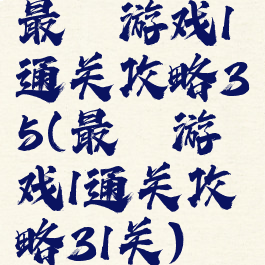 最  游戏1
通关攻略3
5(最  游
戏1通关攻
略31关)